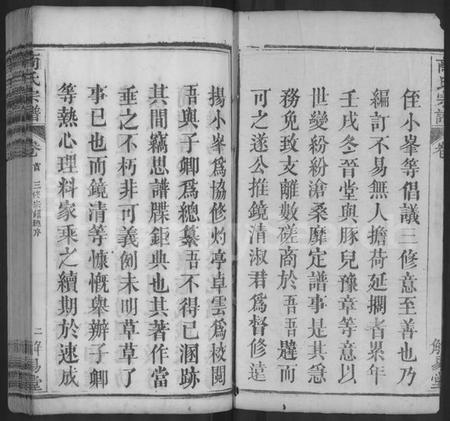 商氏宗譜
卷
侄小峯等倡議三修意至善也乃
編訂不易無人擔荷延擱者累年
壬戌冬晉堂與豚兒豫章等意以
世變紛紛滄桑靡定譜事是其急
務免致支離數磋商於吾吾韙而
可之遂公推鏡清淑君爲督修遠
解易堂
揚小峯爲協修灼亭卓雲爲校閲
吾與子卿爲總纂吾不得已溷跡
其間竊思譜牒鉅典也其著作當
垂之不朽非可義例未明草草了
事已也而鏡清等慷慨舉辦子卿
等熱心理料家乘之續期於速成
商氏宗譜
卷首
二
解易堂